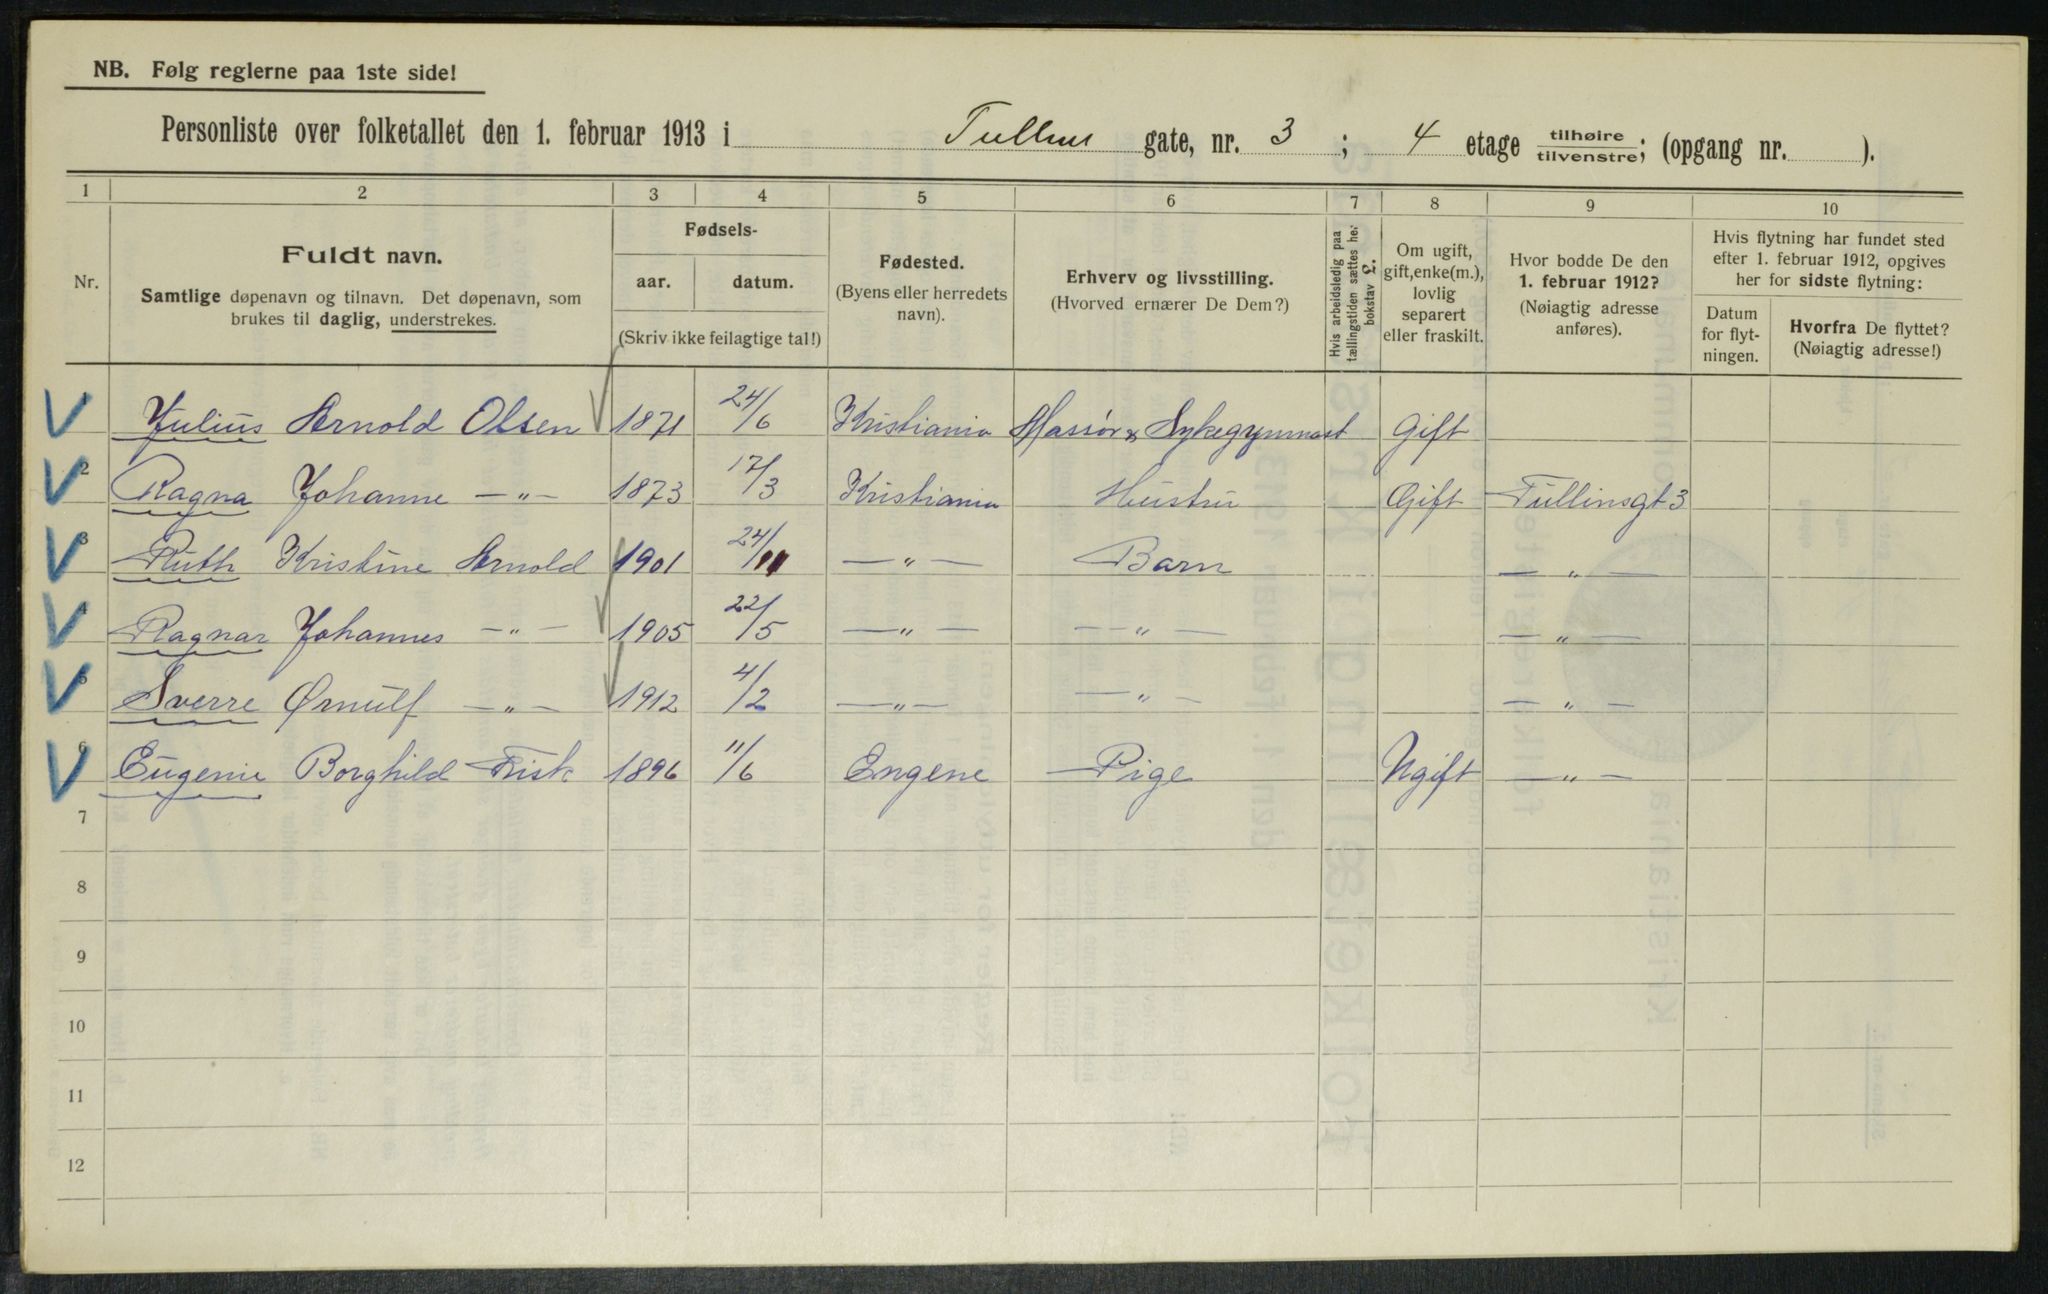 NB. Følg reglerne paa 1ste side!
Personliste over folketallet den 1. februar 1913 i Tullins gate, nr. 3 ; 4 etage tilhøire / tilvenstre; (opgang nr. ).
1 2 3 4 5 6 7 8 9 10
Nr.
Fuldt navn.
Samtlige døpenavn og tilnavn. Det døpenavn, som
brukes til daglig, understrekes.
Fødsels-
aar. datum.
(Skriv ikke feilagtige tal!)
Fødested.
(Byens eller herredets
navn).
Erhverv og livsstilling.
(Hvorved ernærer De Dem?)
Hvis arbeidsledig paa
tællingstiden sættes her
bokstav L.
Om ugift,
gift, enke(m.),
lovlig
separert
eller fraskilt.
Hvor bodde De den
1. februar 1912?
(Nøiagtig adresse
anføres).
Hvis flytning har fundet sted
efter 1. februar 1912, opgives
her for sidste flytning:
Datum
for flyt-
ningen.
Hvorfra De flyttet?
(Nøiagtig adresse!)
1 Julius Arnold Olsen 1871 24/6 Kristiania Massør & Sykegymnast Gift
2 Ragna Johanne —"— 1873 17/3 Kristiania Hustru Gift Tullinsgt 3
3 Ruth Kristine Arnold 1901 24/11 —"— Barn —"—
4 Ragnar Johannes —"— 1905 22/5 —"— —"— —"—
5 Sverre Ørnulf —"— 1912 4/2 —"— —"— —"—
6 Eugenie Borghild Frisk 1896 11/6 Engene Pige Ugift —"—
7
8
9
10
11
12